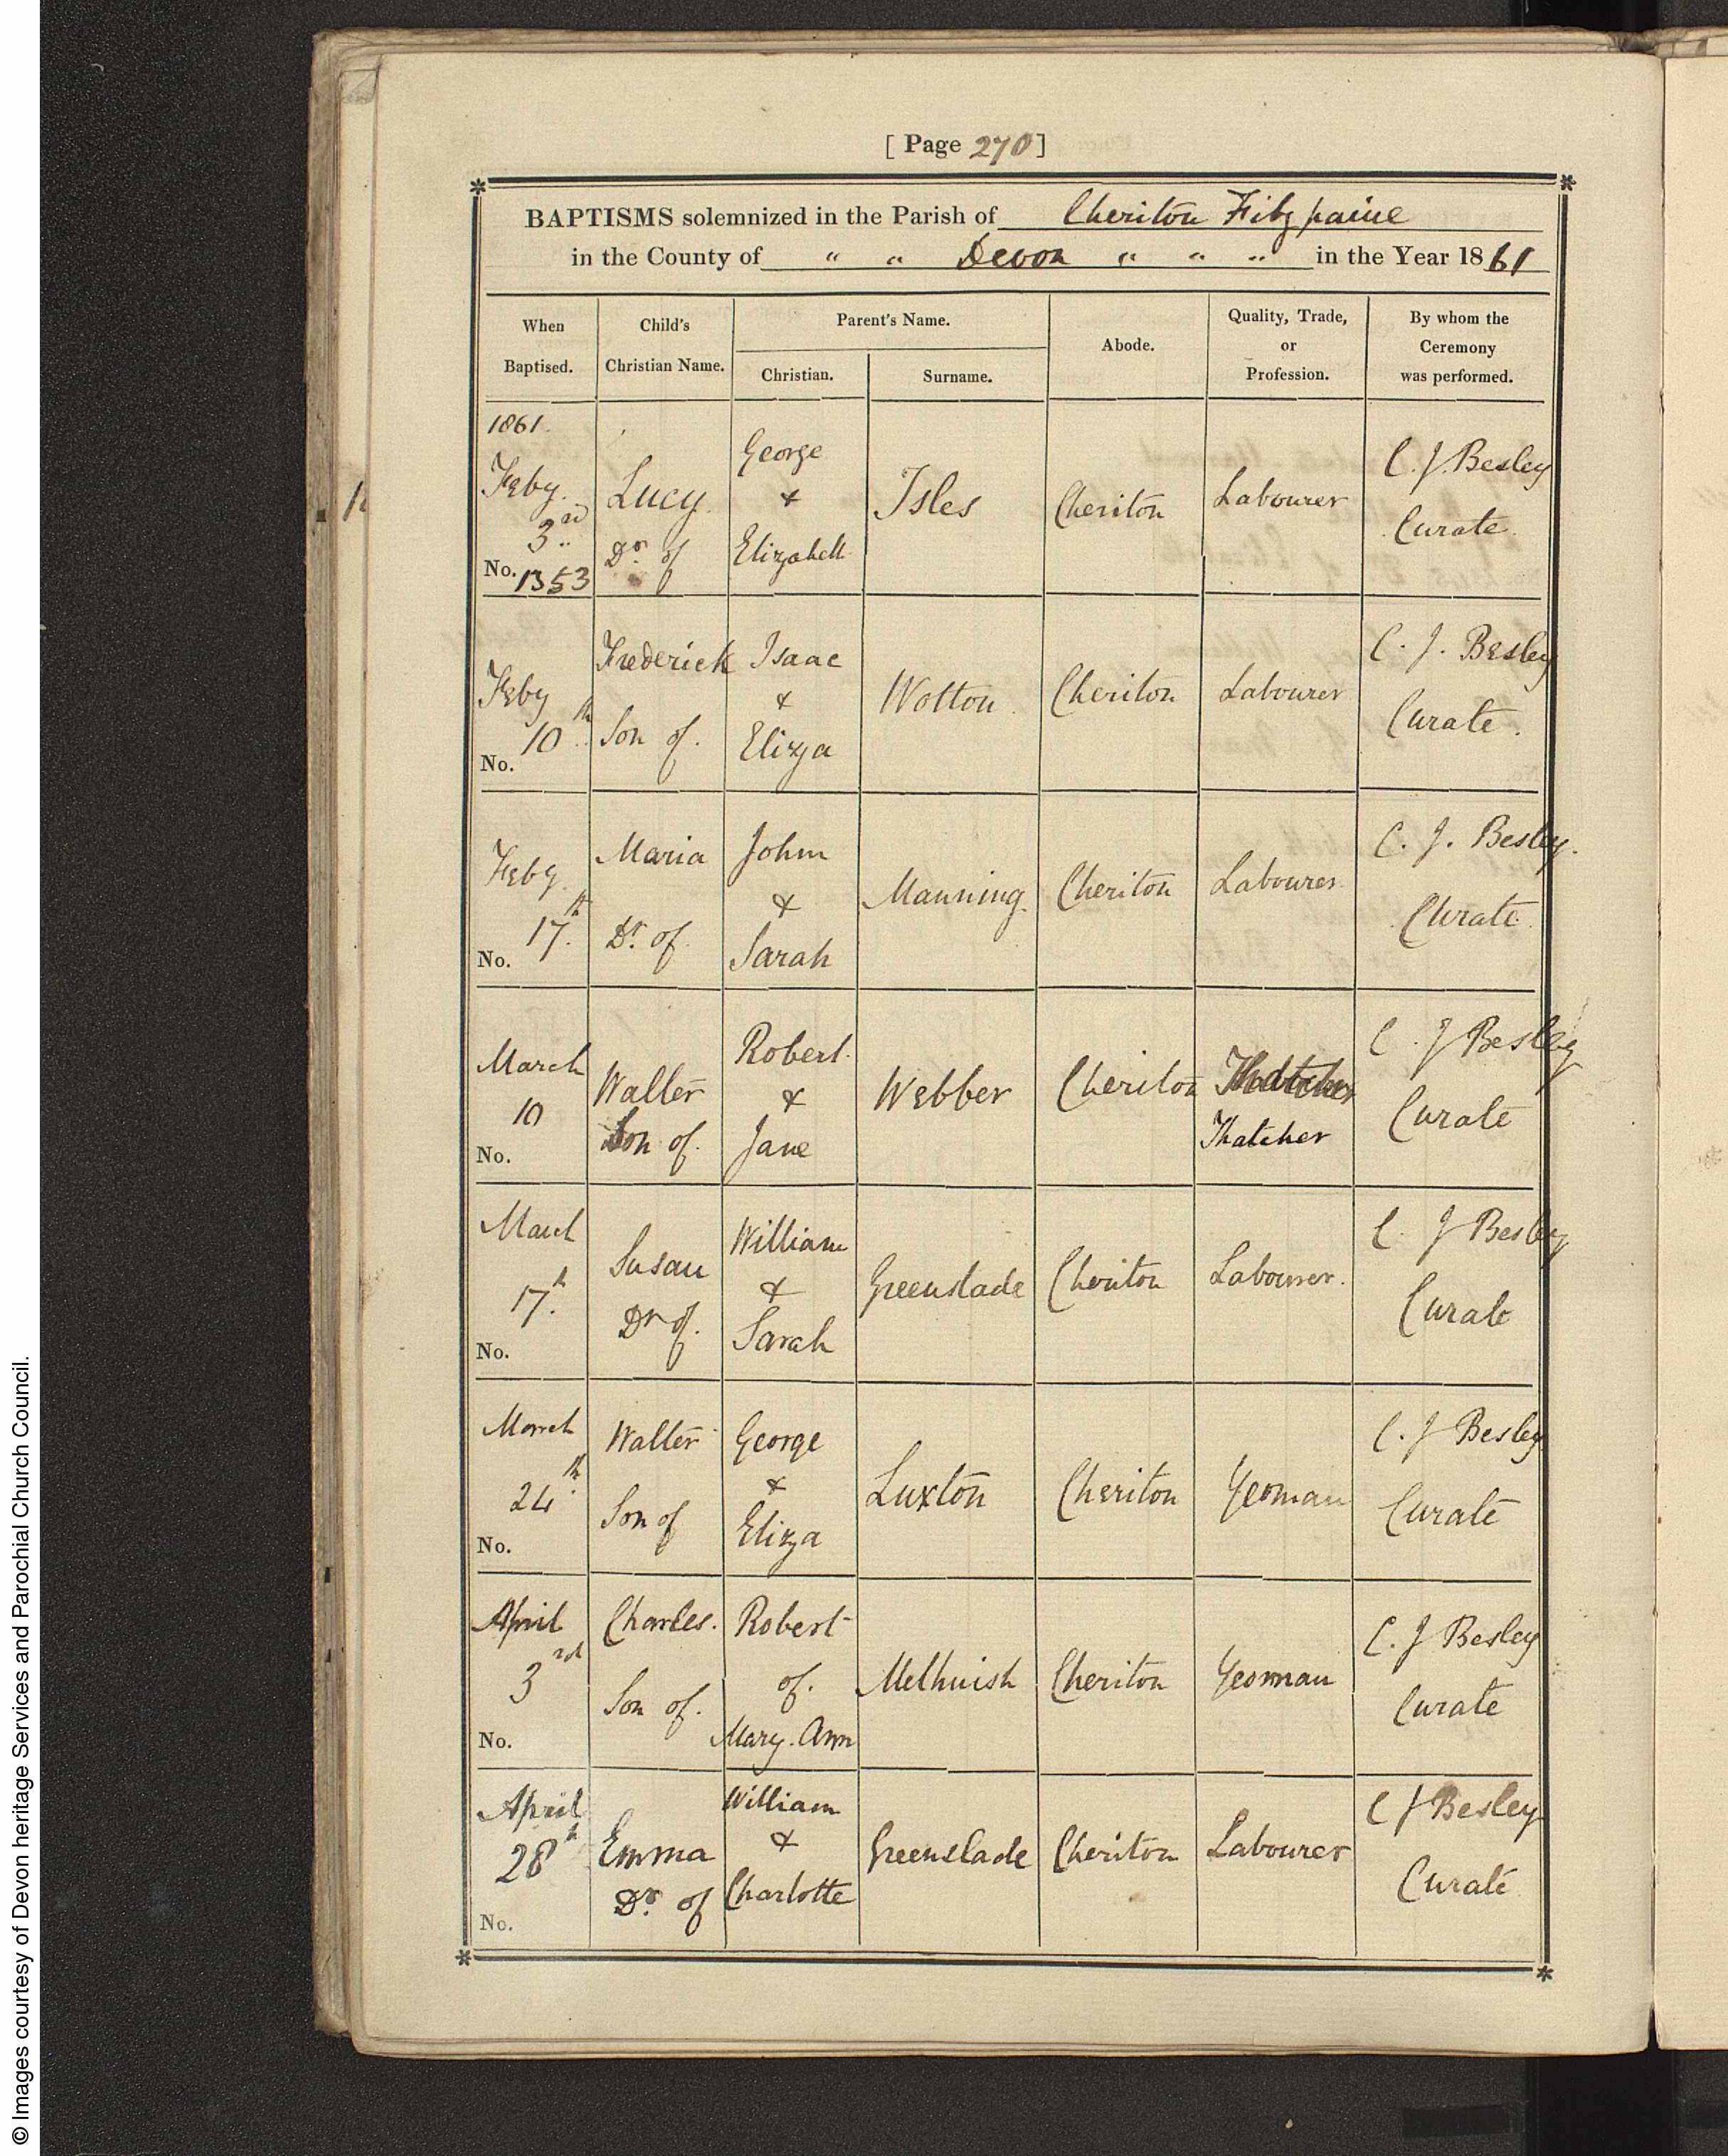 [ Page 270 ]
BAPTISMS solemnized in the Parish of Cheriton Fitzpaine
in the County of " " Devon " " " in the Year 1861
When Baptised.
Child's Christian Name.
Parent's Name.
Christian.
Surname.
Abode.
Quality, Trade, or Profession.
By whom the Ceremony was performed.
1861.
Feby. 3rd
No. 1353
Lucy
Dr. of
George
&
Elizabeth
Isles
Cheriton
Labourer
C. J. Besley
Curate
Feby
10th
No.
Frederick
Son of.
Isaac
&
Eliza
Wotton
Cheriton
Labourer
C. J. Besley
Curate.
Feby
17th
No.
Maria
Dr. of
John
&
Sarah
Manning
Cheriton
Labourer
C. J. Besley.
Curate
March
10
No.
Walter
Son of.
Robert
&
Jane
Webber
Cheriton
Thatcher
C. J Besley
Curate
March
17th
No.
Susan
Dr of.
William
&
Sarah
Greenslade
Cheriton
Labourer.
C. J Besley
Curate
March
24th
No.
Walter
Son of
George
&
Eliza
Luxton
Cheriton
Yeoman
C. J Besley
Curate
April
3rd
No.
Charles.
Son of.
Robert
of.
Mary. Ann
Melhuish
Cheriton
Yeoman
C. J Besley
Curate
April
28th
No.
Emma
Dr. of
William
&
Charlotte
Greenslade
Cheriton
Labourer
C J Besley
Curate
© Images courtesy of Devon heritage Services and Parochial Church Council.